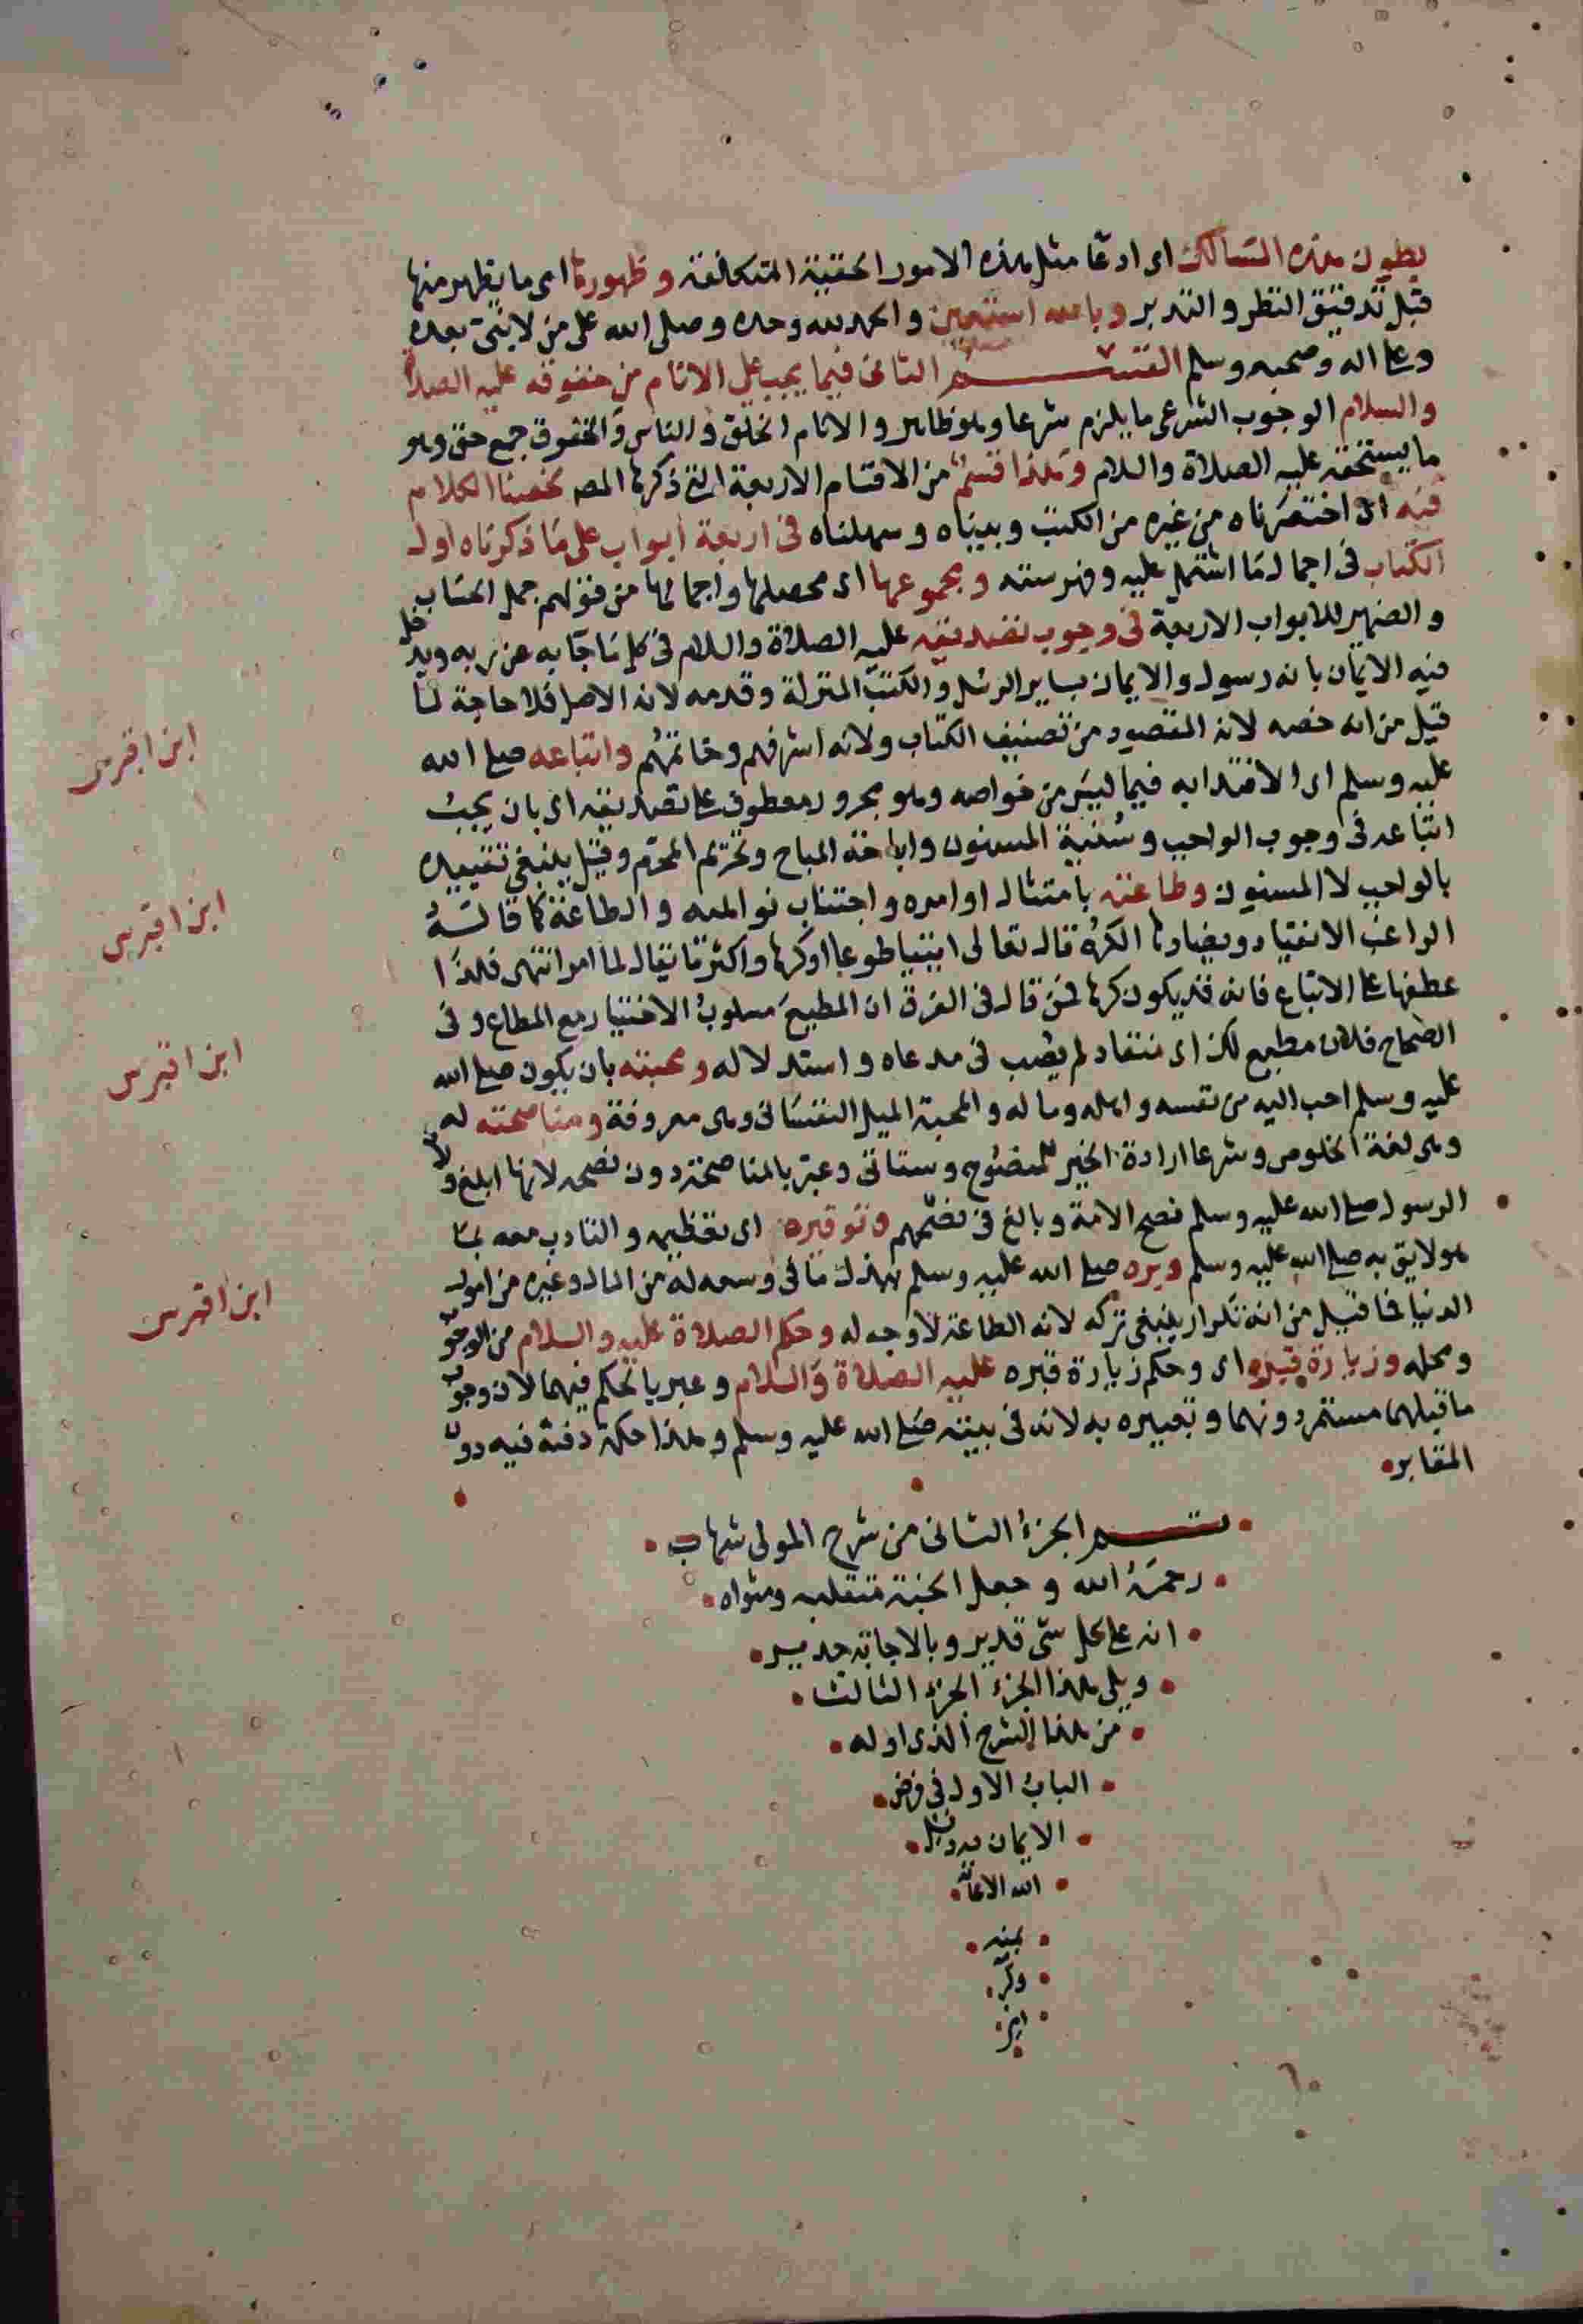 بطون هذه المسالك اى ادعا مثل هذه الامور الحقية المتكلفة وظهورها اى ما يظهر منها
قبل تدقيق النظر والتدبر وبالله استعين والحمد لله وحده وصلى الله على من لا نبى بعده
وعلى اله وصحبه وسلم القسم الثانى فيما يجب على الانام من حقوقه عليه الصلاة
والسلام الوجوب الشرعى ما يلزم شرعا وهو ظاهر والانام الخلق والناس والحقوق جمع حق وهو
ما يستحقه عليه الصلاة والسلام وهذا قسم من الاقسام الاربعة التى ذكرها المصـ لخصنا الكلام
فيه اى اختصرناه من غيره من الكتب وبيناه وسهلناه فى اربعة ابواب على ما ذكرناه اول
الكتاب فى اجمال ما اشتمل عليه وفهرسته ومجموعها اى محصلها واجمالها من قولهم جمل الحساب
والضمير للابواب الاربعة فى وجوب تصديقه عليه الصلاة والسلام فى كل ما جآ به عن ربه ويدخل
فيه الايمان بانه رسول والايمان بساير الرسل والكتب المنزلة وقدمه لانه الاصل فلا حاجة لما
قيل من انه خصه لانه المقصود من تصنيف الكتاب ولانه اشرفهم وخاتمهم واتباعه صلى الله
عليه وسلم اى الاقتدا به فيما ليس من خواصه وهو مجرور معطوف على تصديقه اى بان يجب
اتباعه فى وجوب الواجب وسنية المسنون واباحة المباح وتحريم المحرم وقيل ينبغى تقييده
بالواجب لا المسنون وطاعته بامتثال اوامره واجتناب نواهيه والطاعة كما قاله
الراغب الانقياد ويضادها الكره قال تعالى ايتيا طوعا او كرها واكثر ما يقال لما امر انتهى فلذا
عطفها على الاتباع فانه قد يكون كرها فمن قال فى الفرق ان المطيع مسلوب الاختيار مع المطاع وفى
الصحاح فلان مطيع لك اى منقاد لم يصب فى مدعاه واستدلاله ومحبته بان يكون صلى الله
عليه وسلم احب اليه من نفسه واهله وماله والمحبة الميل النفسانى وهى معروفة ومناصحته له
وهى لغة الخلوص وشرعا ارادة الخير للمنصوح وستاتى وعبر بالمناصحة دون نصحه لانها ابلغ ولان
الرسول صلى الله عليه وسلم نصح الامة وبالغ فى نصحهم وتوقيره اى تعظيمه والتادب معه بما
هو لايق به صلى الله عليه وسلم وبره صلى الله عليه وسلم ببذل ما فى وسعه له من المال وغيره من امور
الدنيا فما قيل من انه تكرار ينبغى تركه لانه الطاعة لا وجه له وحكم الصلاة عليه والسلام من الوجوب
ومحله وزيارة قبره اى وحكم زيارة قبره عليه الصلاة والسلام وعبر بالحكم فيهما لان وجوب
ما قبلهما مستمر دونهما وتعبيره به لانه فى بيته صلى الله عليه وسلم وهذا حكمة دفنه فيه دون
المقابر
تم الجزء الثانى من شرح المولى شهاب
رحمه الله وجعل الجنة متقلبه ومثواه
انه على كل شى قدير وبالاجابة جدير
ويلى هذا الجزء الجزء الثالث
من هذا الشرح الذى اوله
الباب الاول فى فرض
الايمان به ونسل
الله الاعانة
بمنه
وكر
ابن اقبرس
ابن اقبرس
ابن اقبرس
ابن اقبرس